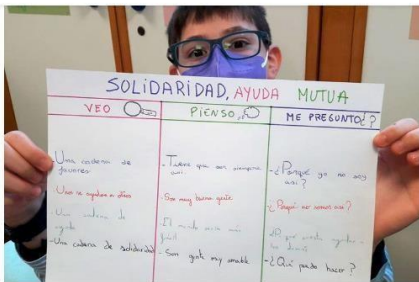 SOLiDARiDAD, AYUDA MUTUA
VEO
PiENSO
ME PREGUNTO¿?
Una cadena de
favores
-Tiene que ser siempre
así.
-¿Porqué yo no soy
así?
Unos se ayudan a otros
-Son muy buena gente
¿Porqué no somos así?
Una cadena de
ayuda
El mundo sería más
fácil
-Una cadena de solidaridad
-Son gente muy amable
-¿Qué puedo hacer?